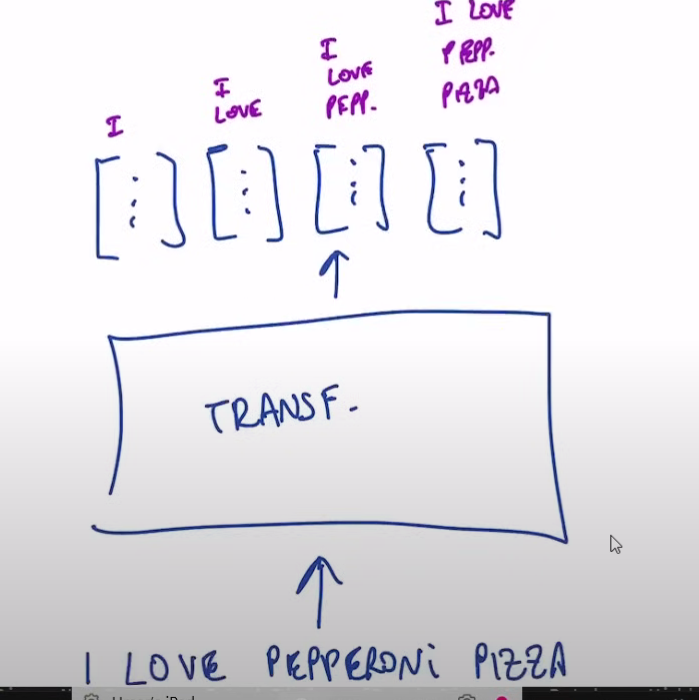 I
I LOVE
I LOVE PEPP.
I LOVE PEPP. PIZZA
TRANSF.
I LOVE PEPPERONi PIZZA